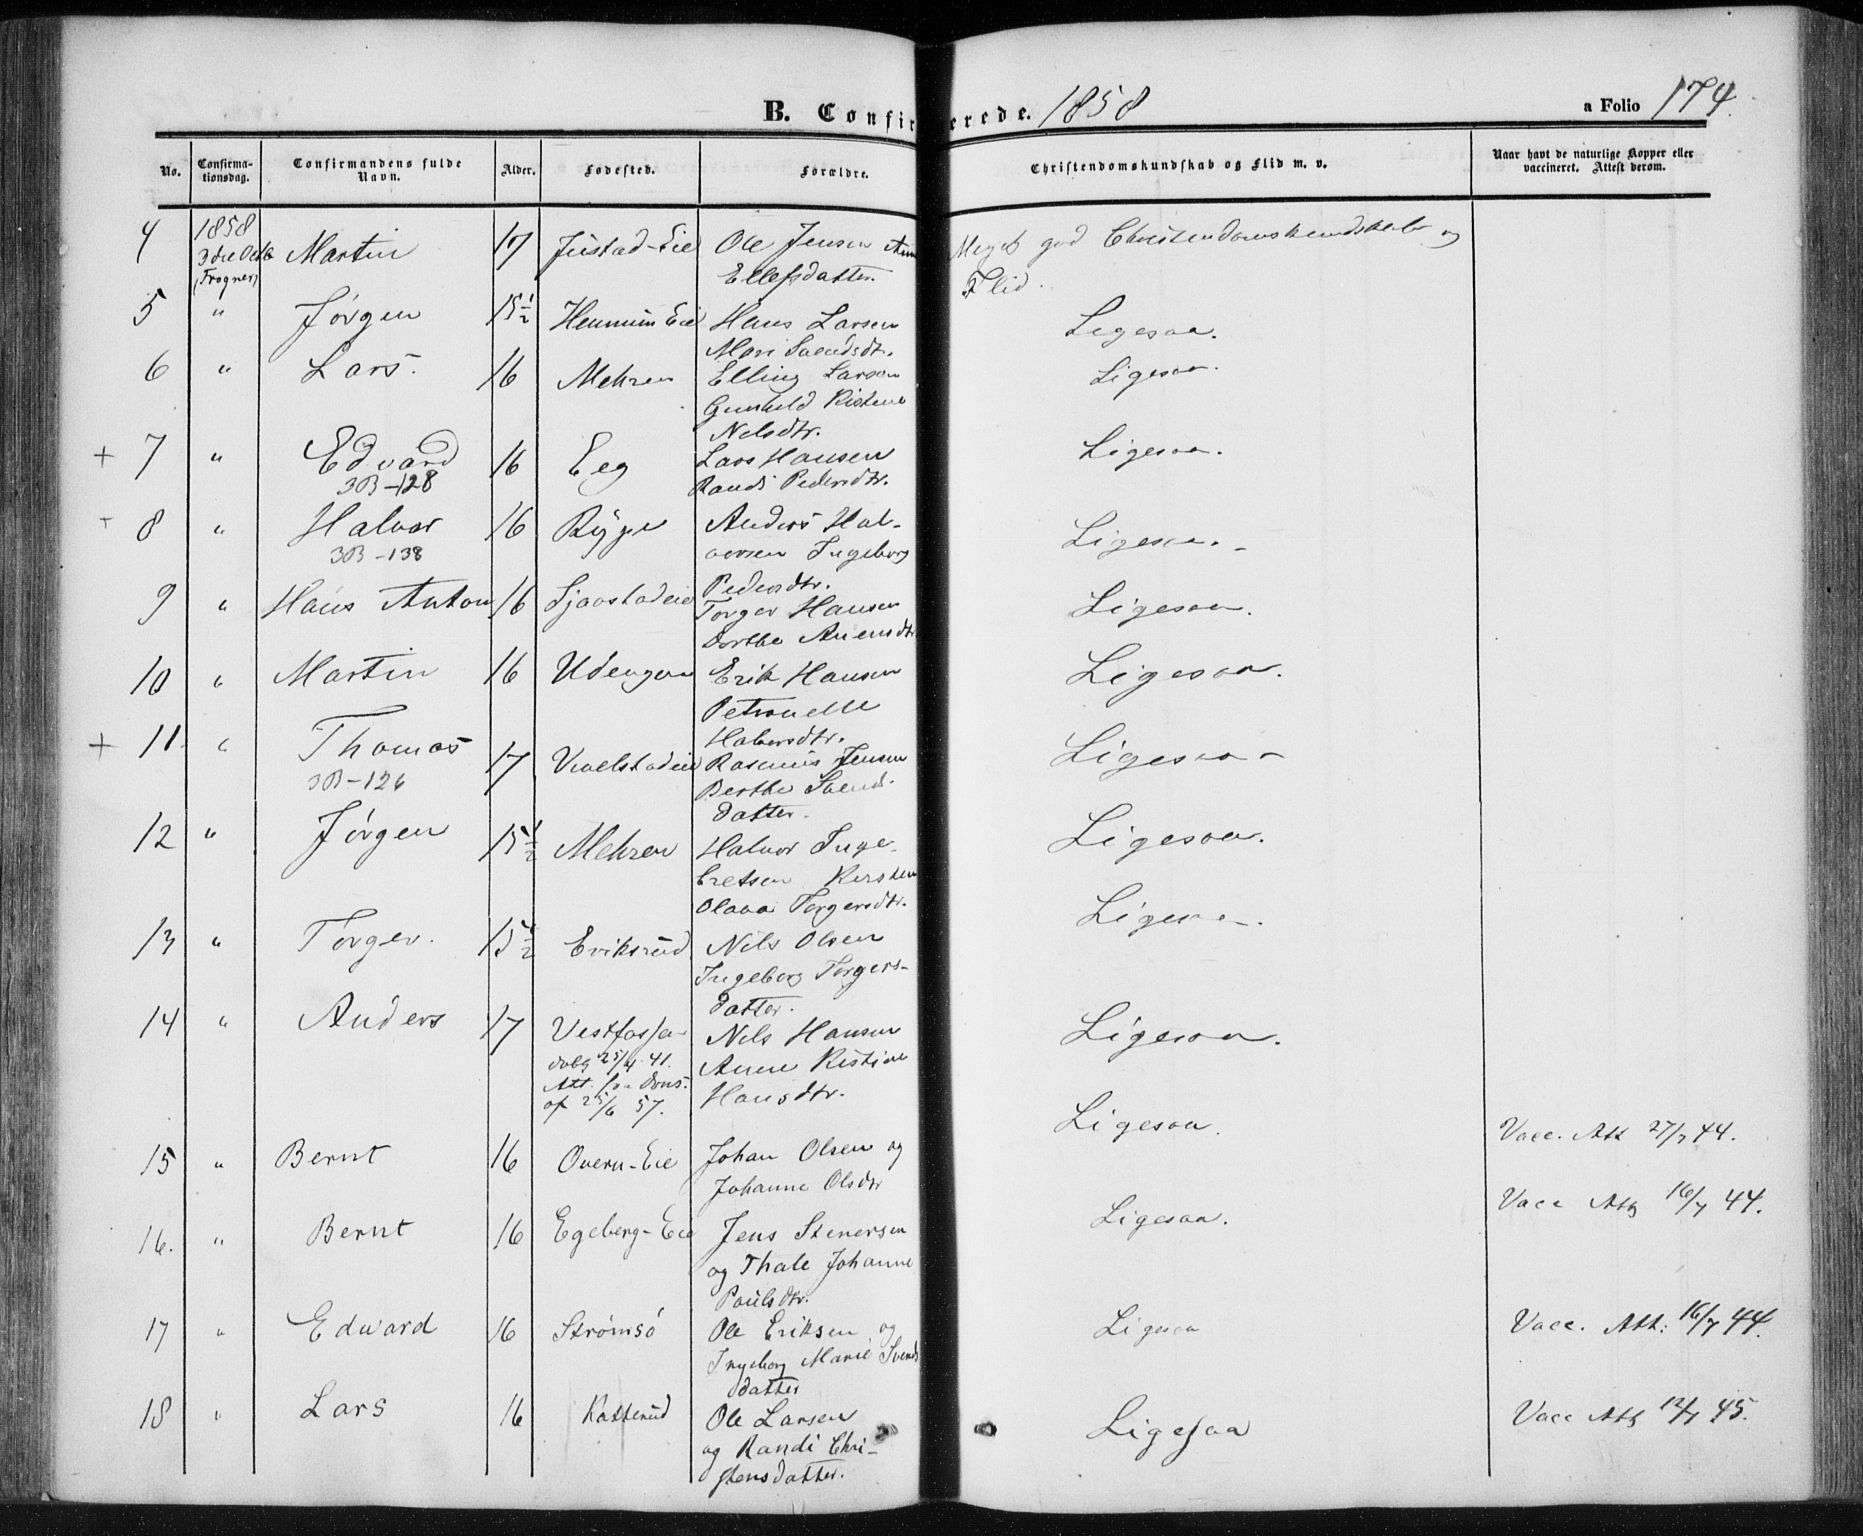 B. Confirmerede. 1858
a Folio 174.
No. Confirmationsdag. Confirmandens fulde Navn. Alder. Fødested. Forældre. Christendomskundskab og Flid m. v. Naar havt de naturlige Kopper eller vaccineret. Attest derom.
4 1858 Martin 17 Justad-Eie Ole Jensen Meget god Christendomskundskab og
(Frogner) Ellefsdatter. Flid.
5 " Jørgen 15½ Hennum Eie Hans Larsen Ligesaa.
Mari Svendsdtr.
6 " Lars. 16 Mehren Elling Larsen Ligesaa.
Gunhild Kistine
Nelsdtr.
+ 7 " Edvard 16 Eeg Lars Hansen Ligesaa.
3B-128 Randi Pedersdtr.
+ 8 " Halvor 16 Rype Anders Hal- Ligesaa.
3B-138 vorsen Ingeborg
Pedersdtr.
9 " Hans Anton 16 Sjaastadeie Torger Hansen Ligesaa.
Dorthe Anensdtr
10 " Martin 16 Udengen Erik Hansen Ligesaa.
Petronelle
Halvorsdtr.
+ 11 " Thomas 17 Rasmus Jensen Ligesaa
3B-126 Berthe Svends-
datter.
12 " Jørgen 15½ Mehren Halvor Inge- Ligesaa.
bretsen Kirsten
Olava Torgersdtr.
13 " Torger. 15½ Eriksrud Nils Olsen Ligesaa.
Ingeborg Torgers-
datter.
14 " Anders 17 Vestfossen Nils Hansen Ligesaa.
25/4 41. Anne Kistine
Att. fra
af 25/6 57. Hansdtr.
15 " Bernt 16 Overn-Eie Johan Olsen og Ligesaa. Vacc. Att 27/7 44.
Johanne Olsdtr
16. " Bernt 16 Egeberg-Eie Jens Stenersen Ligesaa. Vacc Att 16/7 44.
og Thale Johanne
Paulsdtr.
17 " Edward 16 Strømsø Ole Eriksen og Ligesaa Vacc. Att: 16/7 44.
Ingeborg Marie Svends
datter
18 " Lars 16 Katterud Ole Larsen Ligesaa Vacc Att 12/7 45.
og Randi Chri-
stensdatter.